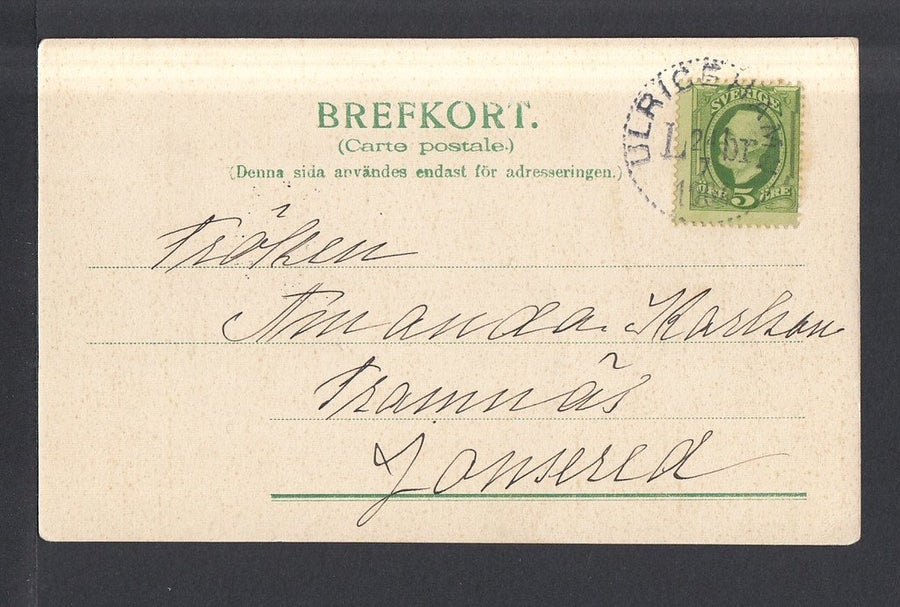 BREFKORT.
(Carte postale.)
(Denna sida användes endast för adresseringen.)
ULRICEHAMN
L br.
SVERIGE
ÖRE 5 ÖRE
Fröken
Amanda Karlson
Framnäs
Jonsered